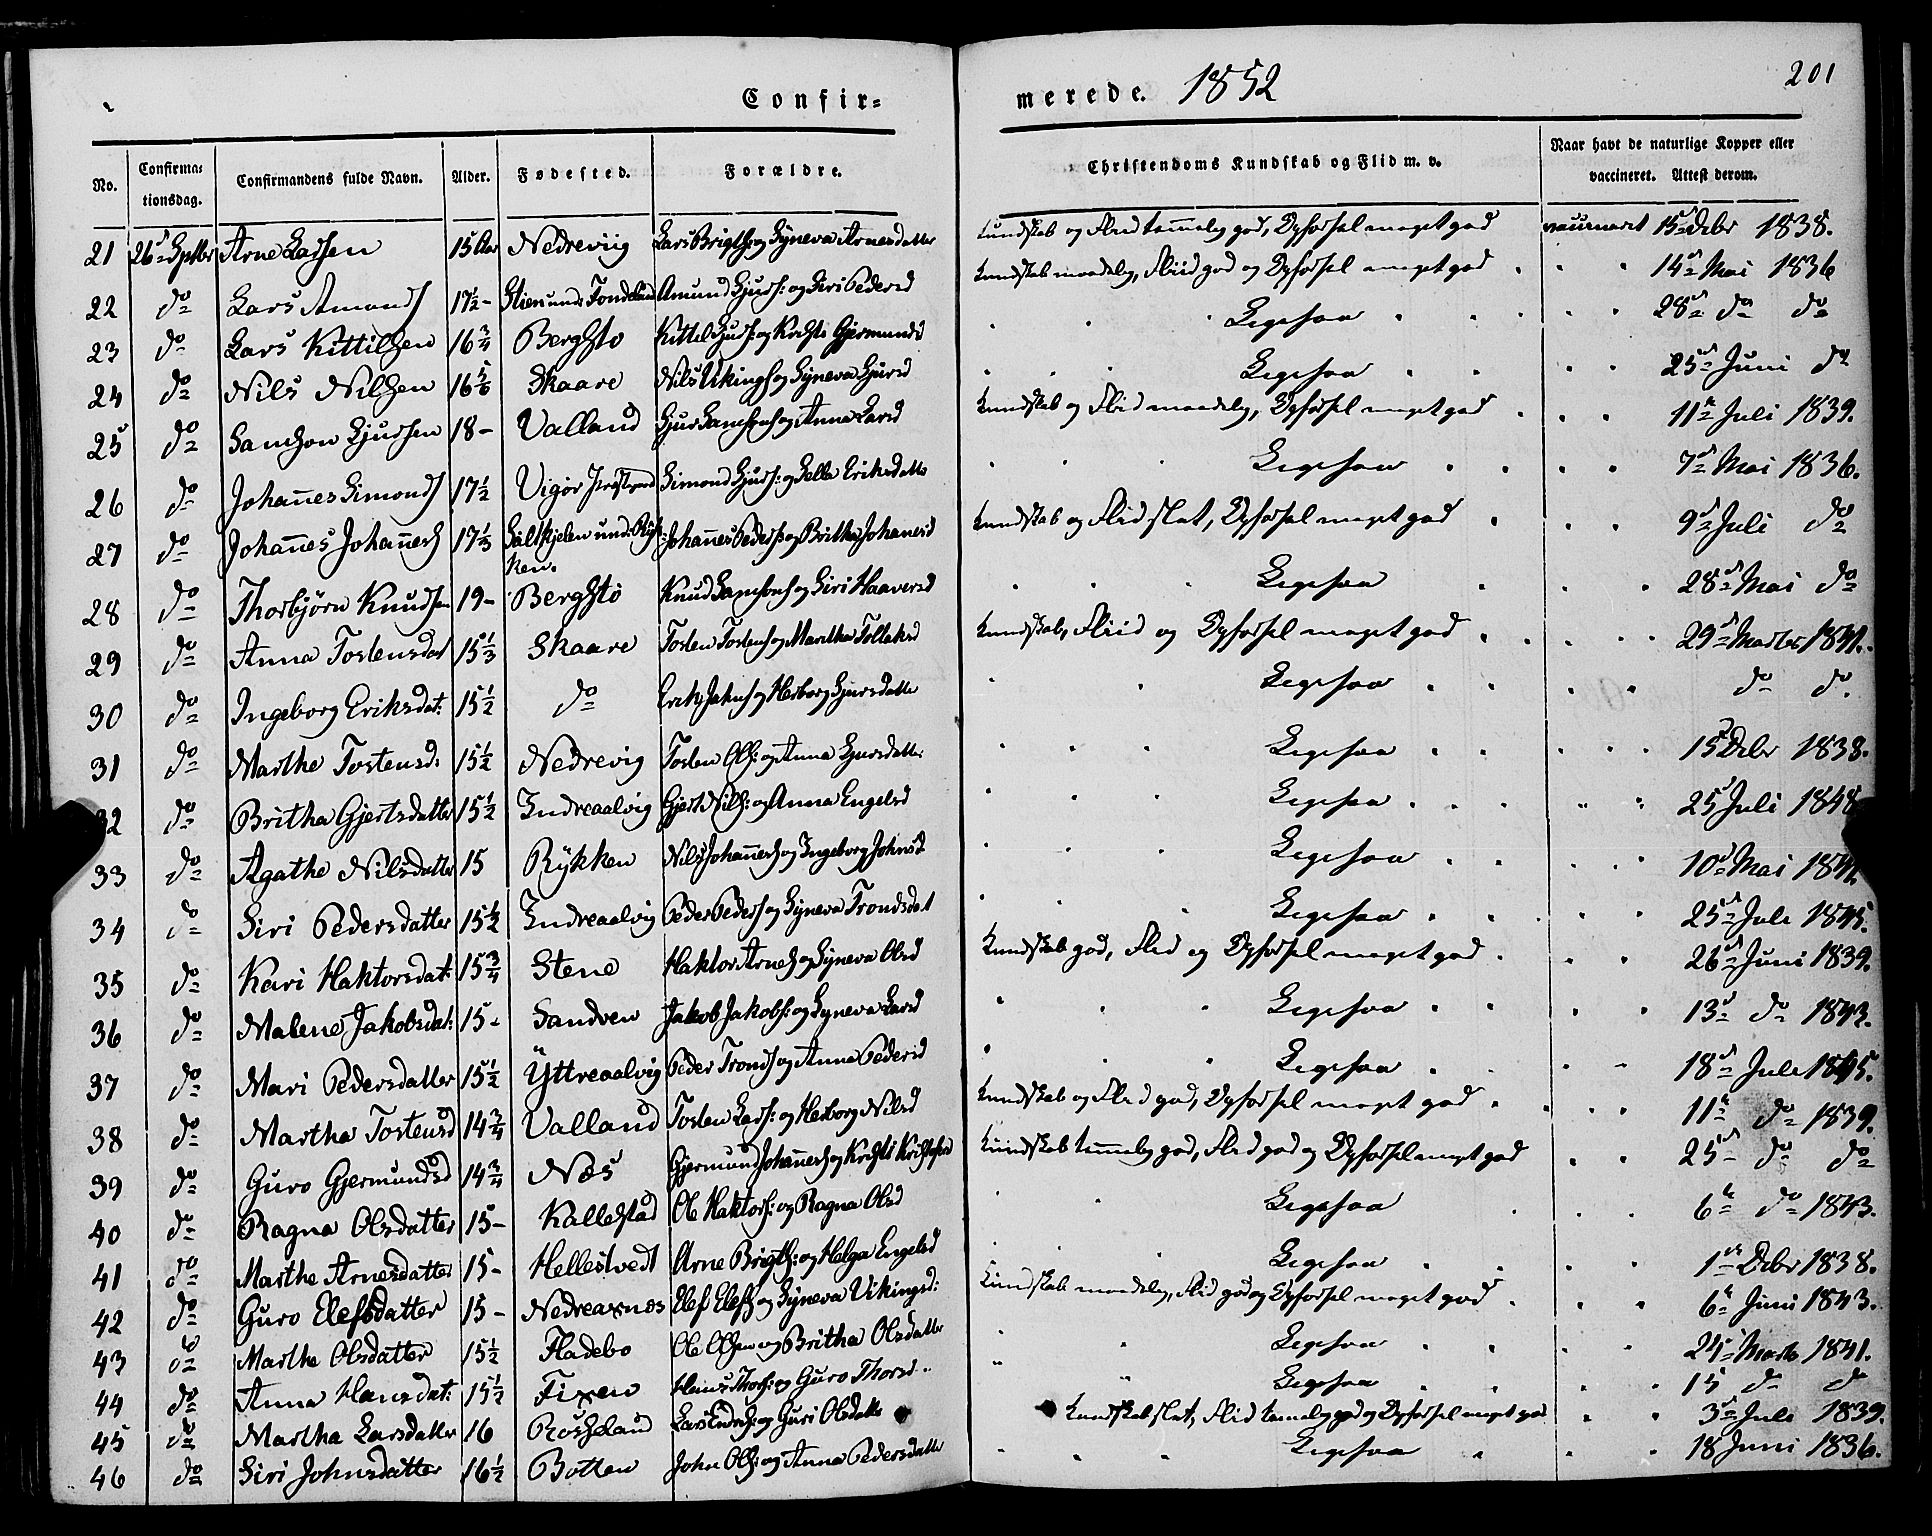 Confir-
merede. 1852
201
No. Confirmationsdag. Confirmandens fulde Navn. Alder. Fødested. Forældre. Christendoms Kundskab og Flid m. v. Naar havt de naturlige Kopper eller vaccineret. Attest derom.
21 26d Septbr Arne Larsen 15 Aar Nedreviig Lars Brigths og Syneva Arnesdatter Kundskab og Flid temmelig god, Opførsel meget god vaccineret 15d Debr 1838.
22 do Lars Amunds 17½ - Amund Sjurs: og Siri Pedersd Kundskab maadelig, Fliid god og Opførsel meget god " 14d Mai 1836
23 do Lars Kittilsen 16¾ Bergstø Kittel Sjurs: og Krosti Gjermundsd Ligesaa 28d do do
24 do Nils Nilsen 16 5/6 Skaare Nils Vikings og Syneva Sjursd Ligesaa 25d Juni do
25 do Samson Sjursen 18 - Valland Sjur Samsons og Anna Larsd Kundskab og Flid maadelig, Opførsel meget god 11te Juli 1839.
26 do Johannes Simons 17½ Vigør Simond Sjurs: og Sella Eriksdatter Ligesaa 7d Mai 1836.
27 do Johannes Johannes 17⅓ Saltskjelen und. Rykken. Johannes Peders og Britha Johanesd Kundskab og Flid slet, Opførsel meget god 9d Juli do
28 do Thorbjørn Knudsen 19 - Bergstø Knud Samsons og Siri Haaversd Ligesaa 28d Mai do
29 do Anna Tostensdat 15⅓ Skaare Tosten Tostens og Martha Tollaksd Kundskab, Fliid og Opførsel meget god 29d Marts 1841.
30 do Ingeborg Eriksdat: 15½ do Erik Jakos og Herborg Sjursdatter Ligesaa do do.
31 do Marthe Tostensd: 15½ Nedrevig Tosten Ols: og Anna Sjursdatter Ligesaa 15d Debr 1838.
32 do Britha Gjertsdatter 15½ Indreaalvig Gjert Nils: og Anna Engelsd Ligesaa 25d Juli 1848
33 do Agathe Nilsdatter 15 Rykken Nils Johannes og Ingeborg Johnsd Ligesaa 10d Mai
34 do Siri Pedersdatter 15½ Indreaalvig Peder Peders og Syneva Trondsdat Ligesaa 25d Juli 1845.
35 do Kari Haktorsdat: 15¾ Stene Haktor Arnes og Syneva Olsd Kundskab god, Flid og Opførsel meget god 26d Juni 1839.
36 do Malene Jakobsdat: 15 - Sandven Jakob Jakobs: og Syneva Larsd Ligesaa 13d do 1843.
37 do Mari Pedersdatter 15½ Yttreaalvig Peder Tronds og Anna Pedersd Ligesaa 18d Juli 1845.
38 do Martha Tostensd 14¾ Valland Tosten Lars: og Herborg Nilsd Kundskab og Flid god, Opførsel meget god 11te do 1839.
39 do Guro Gjermundsd 14¾ Næs Gjermund Johannes og Krosti Kristofersd Kundskab temmelig god, Flid god og Opførsel meget god 25d do do
40 do Ragna Olsdatter 15 - Kallestad Ole Haktors: og Ragna Olsd Ligesaa 6te do 1843.
41 do Marthe Arnesdatter 15 - Hellestvedt Arne Brigths: og Helga Engelsd Ligesaa 1ste Debr 1838.
42 do Guro Elefsdatter 15 - Nedreaxnæs Elef Elefs og Syneva Vikingsd: Kundskab maadelig, Flid god og Opførsel meget god 6te Juni 1843.
43 do Marthe Olsdatter 15½ Fladebø Ole Olsen og Britha Olsdatter Ligesaa Marts 1841.
44 do Anna Hansdat: 15½ Fixen Hans Thors: og Guro Thorsd Ligesaa 15 do do
45 do Martha Larsdatter 16 Rosseland Lars Endres: og Guri Olsdatter Kundskab slet, Flid temmelig god og Opførsel meget god 3d Juli 1839.
46 do Siri Johnsdatter 16½ Botten John Ols: og Anna Pedersdatter Ligesaa 18 Juni 1836.